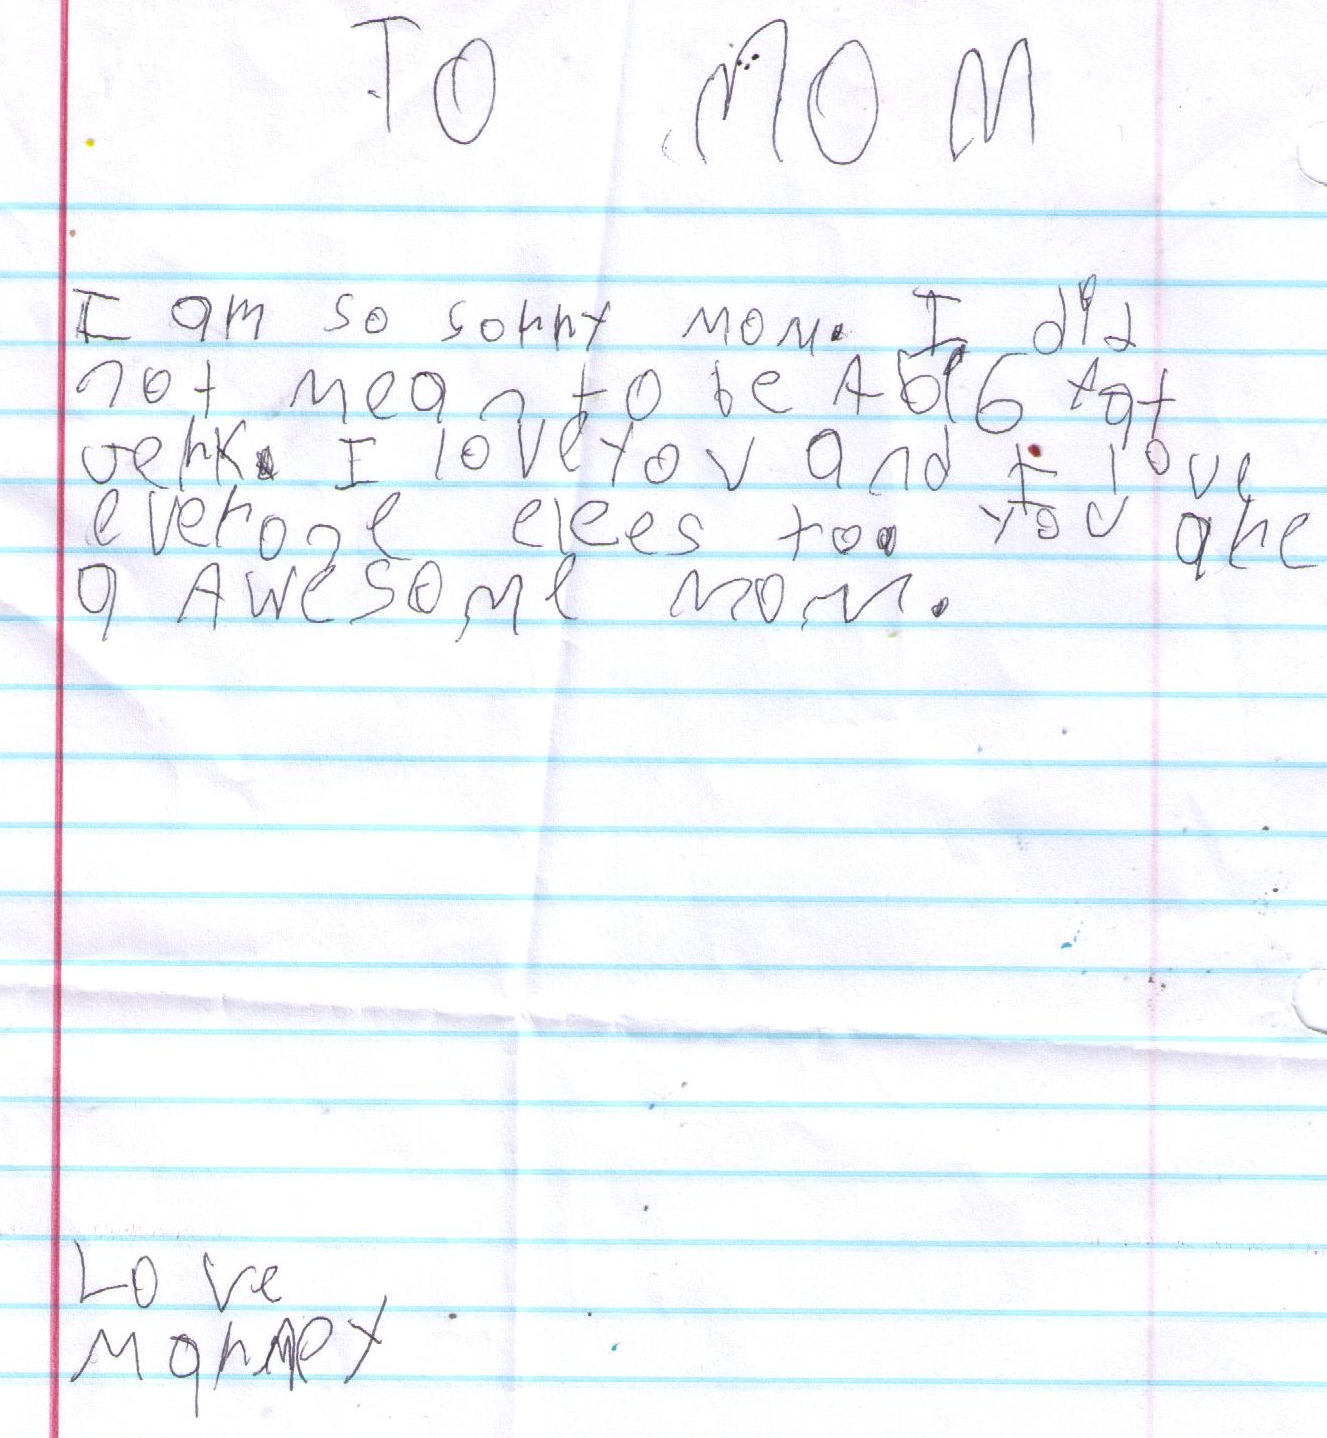 TO MOM
I am so sorry mom. I did
not mean to be A big tat
verk. I love you and I love
everone elees too you are
a AWesome mom.
Love